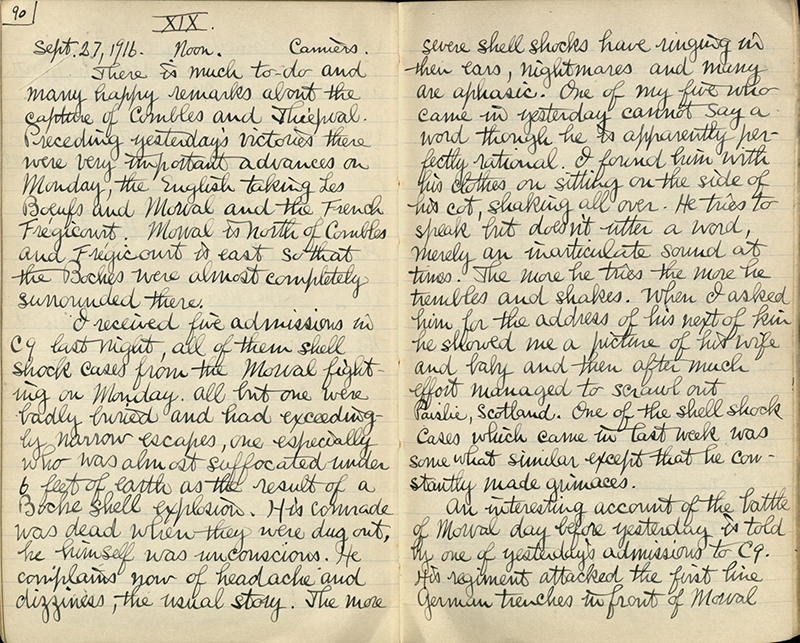 90
XIX.
Sept. 27, 1916. Noon. Camiers.
There is much to-do and
many happy remarks about the
capture of Combles and Thiepval.
Preceding yesterday's victories there
were very important advances on
Monday, the English taking Les
Boeufs and Morval and the French
Fregicourt. Morval is north of Combles
and Fregicourt is east so that
the Boches were almost completely
surrounded there.
I received five admissions in
C9 last night, all of them shell
shock cases from the Morval fight-
ing on Monday. All but one were
badly buried and had exceeding-
ly narrow escapes, one especially
who was almost suffocated under
6 feet of earth as the result of a
Boche shell explosion. His comrade
was dead when they were dug out,
he himself was unconscious. He
complains now of headache and
dizziness, the usual story. The more
severe shell shocks have ringing in
their ears, nightmares and many
are aphasic. One of my five who
came in yesterday cannot say a
word though he is apparently per-
fectly rational. I found him with
his clothes on sitting on the side of
his cot, shaking all over. He tries to
speak but doesn't utter a word,
merely an inarticulate sound at
times. The more he tries the more he
trembles and shakes. When I asked
him for the address of his next of kin
he showed me a picture of his wife
and baby and then after much
effort managed to scrawl out
Paislie, Scotland. One of the shell shock
cases which came in last week was
somewhat similar except that he con-
stantly made grimaces.
An interesting account of the battle
of Morval day before yesterday is told
by one of yesterday's admissions to C9.
His regiment attacked the first line
German trenches in front of Morval